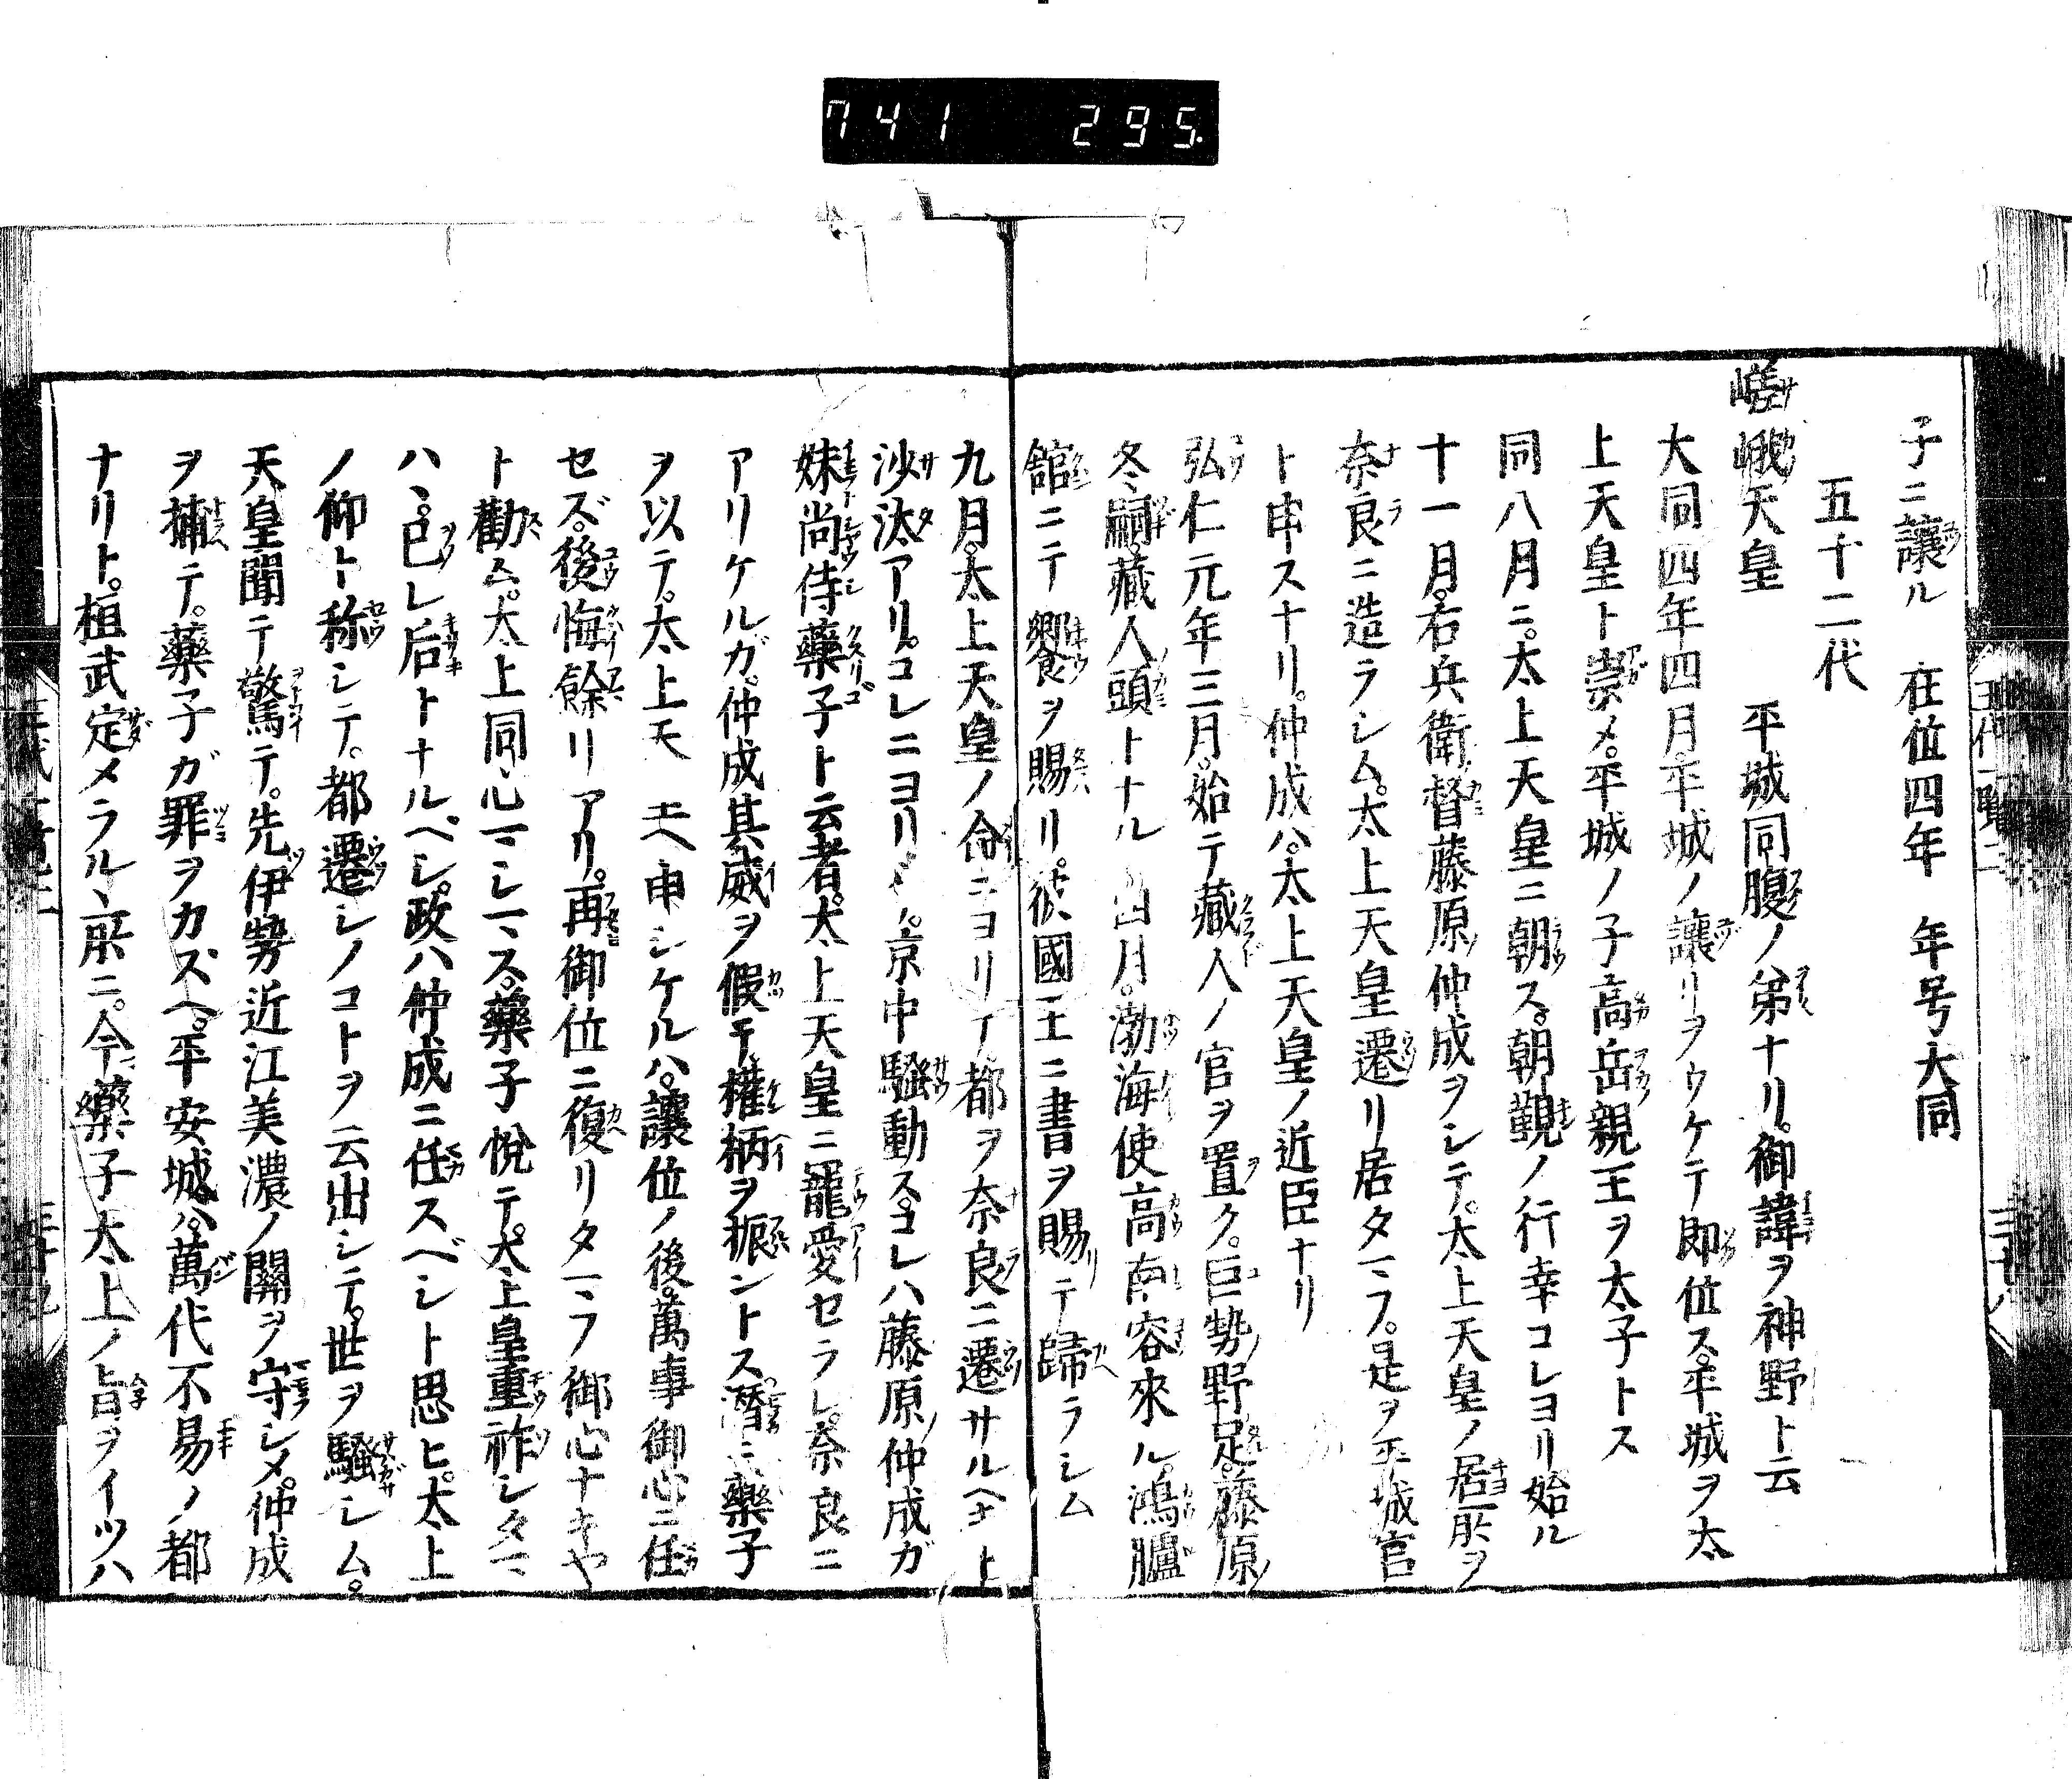 741 295
子ニ讓ル 在位四年 年号大同
五十二代
嵯峨天皇 平城同腹ノ弟ナリ。御諱ヲ神野ト云
大同四年四月。平城ノ讓リヲウケテ即位ス。平城ヲ太
上天皇ト崇メ。平城ノ子高岳親王ヲ太子トス
同八月ニ。太上天皇ニ朝ス。朝覲ノ行幸コレヨリ始ル
十一月。右兵衛督藤原仲成ヲシテ。太上天皇ノ居所ヲ
奈良ニ造ラシム。太上天皇遷リ居タマフ。是ヲ平城官
ト申スナリ。仲成ハ。太上天皇ノ近臣ナリ
弘仁元年三月。始テ藏人ノ官ヲ置ク。巨勢野足。藤原
冬嗣。藏人頭トナル 四月。渤海使高南容來ル。鴻臚
館ニテ饗ヲ賜リ。彼國王ニ書ヲ賜リテ歸ラシム
九月。太上天皇ノ命ニヨリテ都ヲ奈良ニ遷サルヘキト
沙汰アリ。コレニヨリテ。京中騒動ス。コレハ藤原仲成ガ
妹尚侍藥子ト云者。太上天皇ニ寵愛セラレ。奈良ニ
アリケルガ。仲成其威ヲ假テ權柄ヲ振ントス。潛ニ藥子
ヲ以テ。太上天 王ヘ申シケルハ。讓位ノ後。萬事御心ニ任
セズ。後悔餘リアリ。再御位ニ復リタマフ御心ナキヤ
ト勸ム。太上同心マシマス。藥子悅テ。太上皇重祚シタマ
ハヽ。已レ后トナルベシ。政ハ仲成ニ任スベシト思ヒ。太上
ノ仰ト称シテ。都遷シノコトヲ云出シテ。世ヲ騒シム。
天皇聞テ驚テ。先伊勢近江美濃ノ關ヲ守シメ。仲成
ヲ捕テ。藥子ガ罪ヲカズヘ。平安城ハ。萬代不易ノ都
ナリト。桓武定メラルヽ所ニ。今藥子太上ノ旨ヲイツハ